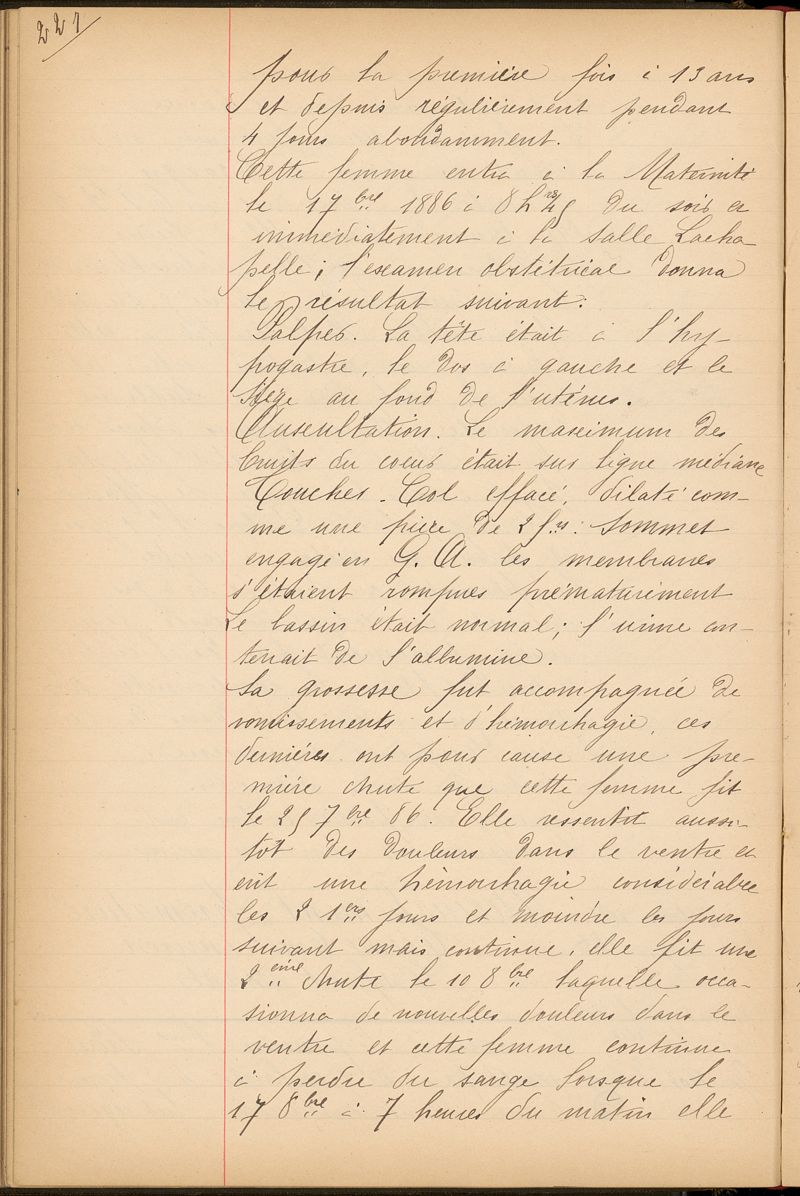 227
pour la première fois à 13 ans
et depuis régulièrement pendant
4 jours abondamment.
Cette femme entra à la Maternité
le 17 bre 1886 à 8 h du soir et
immédiatement à la salle Lacha
pelle ; l'examen obstétrical donna
le résultat suivant :
Palper. La tête était à l'hy-
pogastre, le dos à gauche et le
siège au fond de l'utérus.
Auscultation. Le maximum des
bruits du coeur était sur ligne médiane
Toucher - Col effacé, dilaté com-
me une pièce de 2 frs : sommet
engagé en G. A. les membranes
s'étaient rompues prématurément
Le bassin était normal ; l'urine con-
tenait de l'albumine.
La grossesse fut accompagnée de
vomissements et d'hémorrhagie, ces
dernières ont pour cause une pre-
mière chute que cette femme fit
le 25 7bre 86. Elle ressentit aussi-
tôt des douleurs dans le ventre et
eut une hémorrhagie considérable
les 2 1ers jours et moindre les jours
suivant mais continue, elle fit une
2ème chute le 10 8bre laquelle occa-
sionna de nouvelles douleurs dans le
ventre et cette femme continue
à perdre du sange lorsque le
17 8bre à 7 heures du matin elle